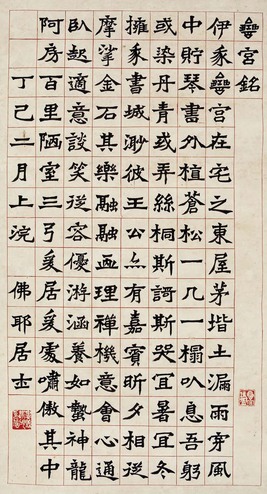 宮銘
伊宮在宅之東屋茅堦土漏雨旁風
中貯琴書外植蒼松一几一榻㠯息吾躬
或染丹青或弄絲桐斯謌斯哭宜暑宜冬
擁書城渺彼王公亦有嘉賓昕夕相從
摩挲金石其樂融融畫理禪機意會心通
臥起適意談笑從容優游涵養如蟄神龍
阿房百里陋室三弓爰居爰處嘯傲其中
丁己二月上浣 佛耶居士